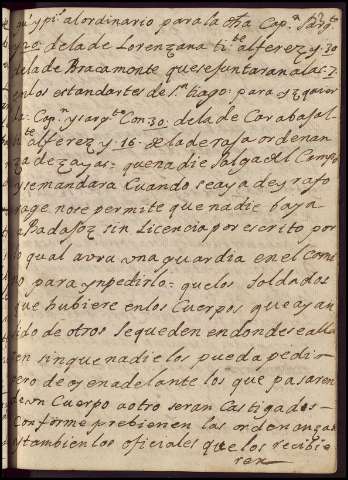 ypi al ordinario para la dha Cap.n Sarg.to
de la de Lorenzana ti.te alferez y 30
de la de Bracamonte que se juntaran a las 7
en los estandartes de S.n tiago: para
Cap.n y sarg.to Con 30 de la de Carabajal
te alferez y 16 de la de rosa ordenan
za de zayas que nadie salga del Campo
y se mandara Cuando se aya de yr a fo
rage no se permite que nadie baya
a Badajoz sin Licencia por escrito por
lo qual avra una guardia en el Cami
no para ynpedirlo: que los soldados
que hubiere en los Cuerpos que ayan
sido de otros se queden en donde se alla
ren sin que nadie los pueda pedir
pero de oy en adelante los que pasaren
de un Cuerpo a otro seran Castigados
Conforme prebienen las ordenanzas
y tambien los oficiales que los recibie
ren